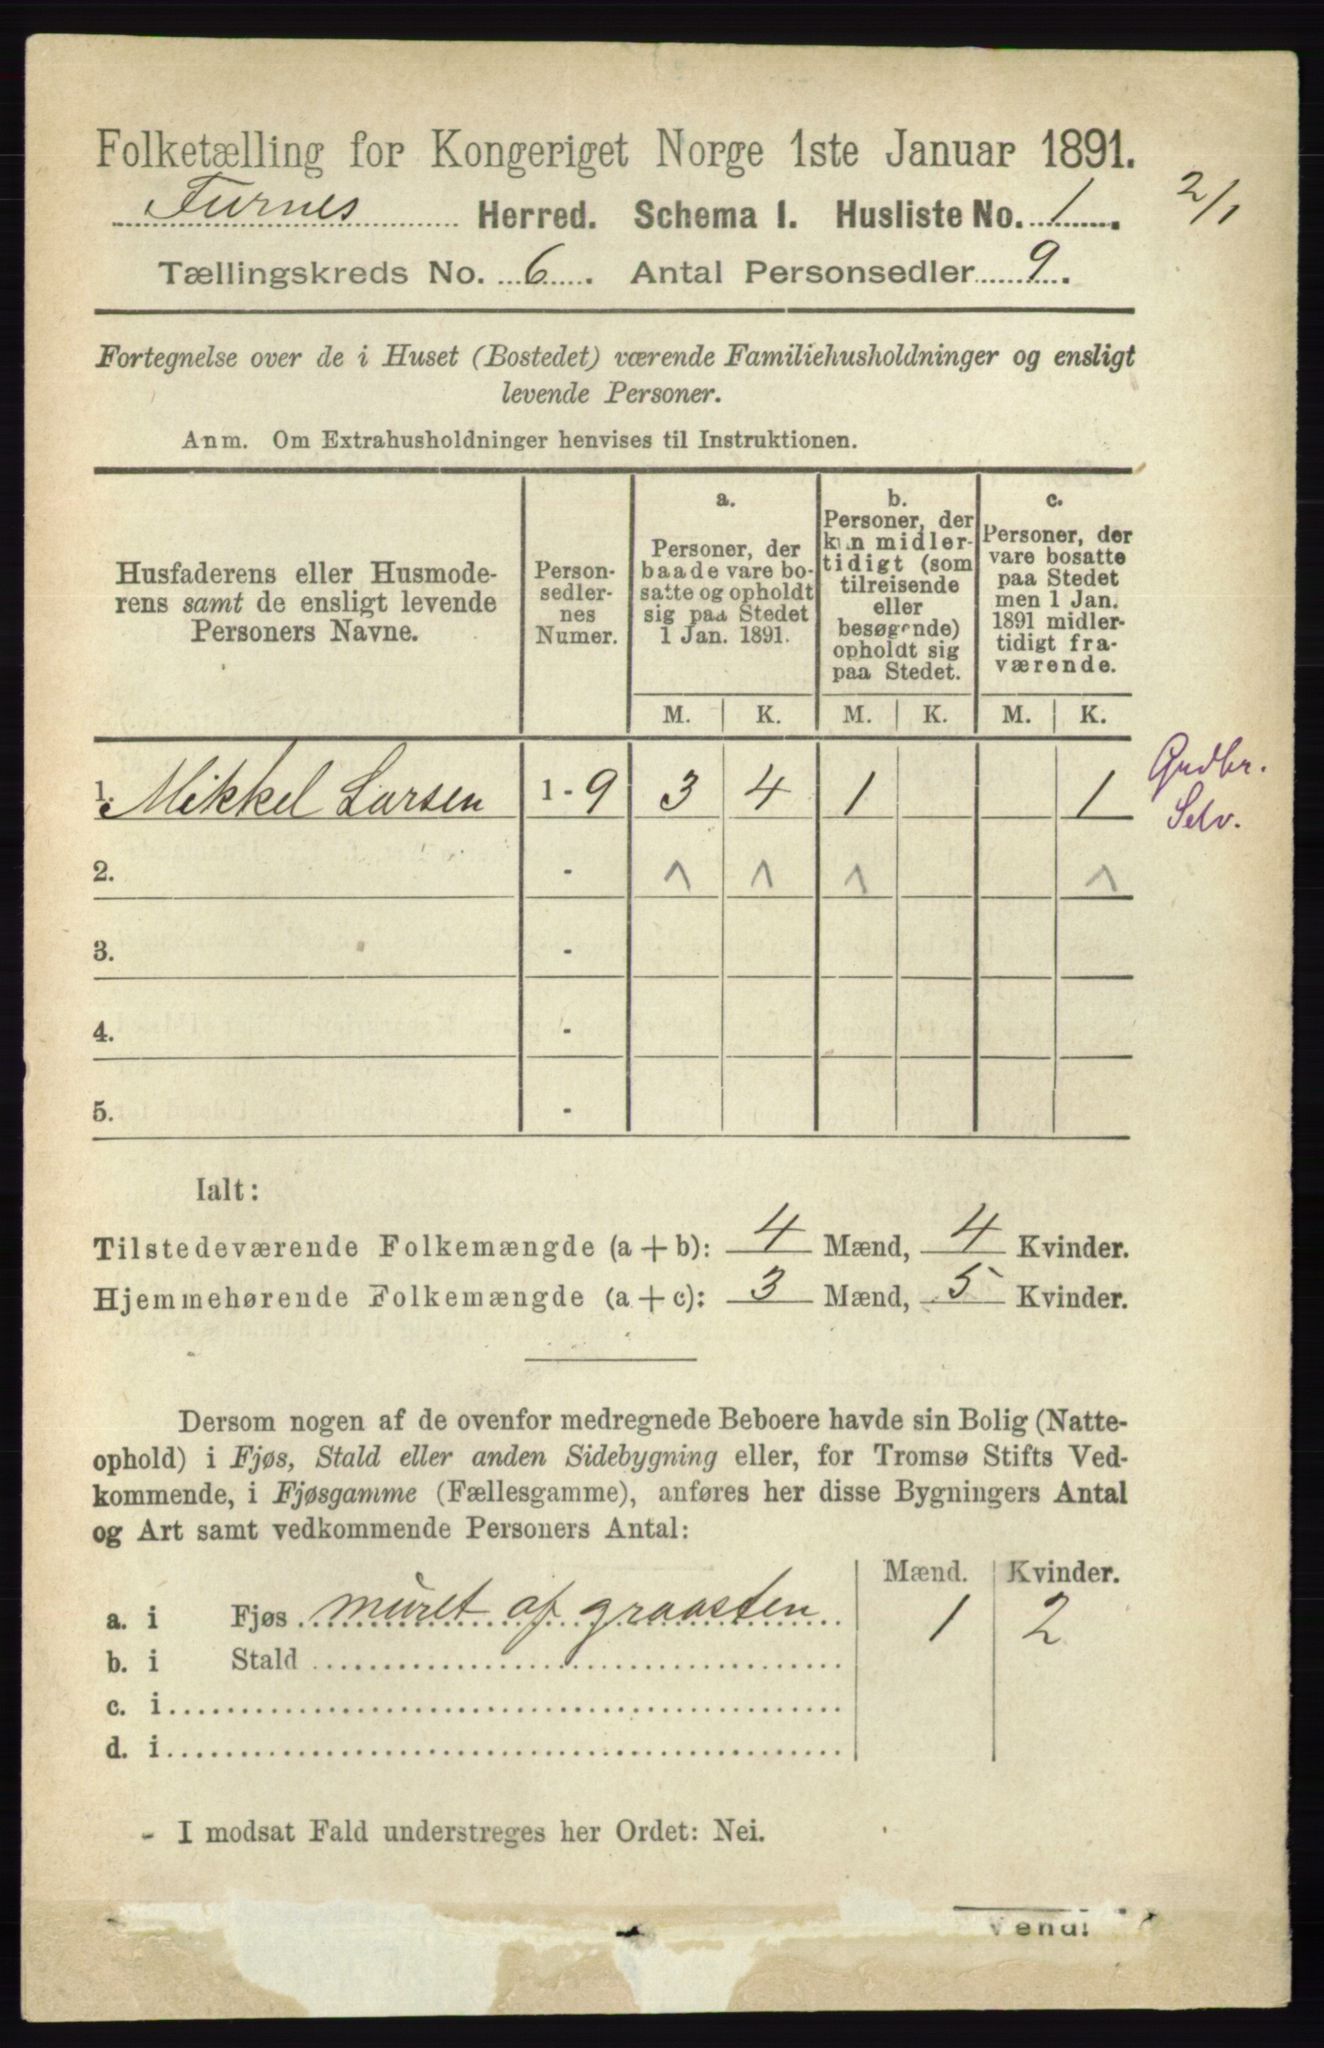 Folketælling for Kongeriget Norge 1ste Januar 1891.
Furnes Herred. Schema I. Husliste No. 1. 2/1
Tællingskreds No. 6. Antal Personsedler 9.
Fortegnelse over de i Huset (Bostedet) værende Familiehusholdninger og ensligt
levende Personer.
Anm. Om Extrahusholdninger henvises til Instruktionen.
Husfaderens eller Husmode-
rens samt de ensligt levende
Personers Navne.
Person-
sedler-
nes
Numer.
a.
Personer, der
baade vare bo-
satte og opholdt
sig paa Stedet
1 Jan. 1891.
b.
Personer, der
kun midler-
tidigt (som
tilreisende
eller
besøgende)
opholdt sig
paa Stedet.
c.
Personer, der
vare bosatte
paa Stedet
men 1 Jan.
1891 midler-
tidigt fra-
værende.
M. K. M. K. M. K.
1. Mikkel Larsen 1 - 9 3 4 1 1
Gudbr.
Selv.
2. -
3. -
4. -
5. -
Ialt:
Tilstedeværende Folkemængde (a + b): 4 Mænd, 4 Kvinder.
Hjemmehørende Folkemængde (a + c): 3 Mænd, 5 Kvinder.
Dersom nogen af de ovenfor medregnede Beboere havde sin Bolig (Natte-
ophold) i Fjøs, Stald eller anden Sidebygning eller, for Tromsø Stifts Ved-
kommende, i Fjøsgamme (Fællesgamme), anføres her disse Bygningers Antal
og Art samt vedkommende Personers Antal:
Mænd. Kvinder.
a. i Fjøs muret af graasten 1 2
b. i Stald
c. i
d. i
- I modsat Fald understreges her Ordet: Nei.
Vend!